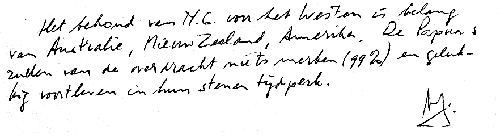 Het behoud van N.G. voor het Westen is belang
van Australië, Nieuw Zeeland, Amerika. De Papoea's
zullen van de overdracht niets merken (99%) en geluk-
kig voortleven in hun stenen tijdperk.